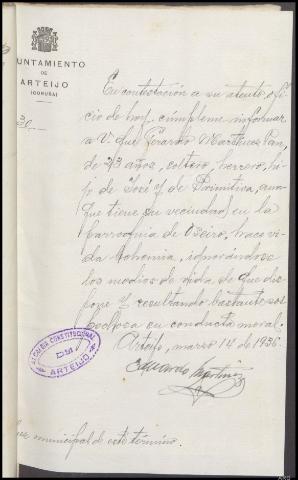 UNTAMIENTO
DE
ARTEIJO
(CORUÑA)
En contestación a su atento ofi
cio de hoy, cúmpleme informar
a V. que Gerardo Martinez Pan,
de 23 años, soltero, herrero, hi-
jo de José y de Primitiva, aun-
que tiene su vecindad en la
parroquia de Oseiro, hace vi-
da bohemia, ignorándose
los medios de vida de que dis-
pone y resultando bastante sos
pechosa su conducta moral.
Arteijo, marzo 14 de 1936.
Eduardo Martinez
ALCALDIA CONSTITUCIONAL
DE
ARTEIJO
municipal de este término.